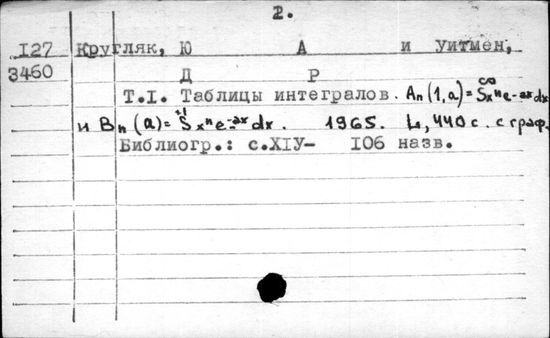 2.
127 Кругляк, Ю А и Уитмен,
3460 Д Р
Т.I. Таблицы интегралов. Aₙ(1,a)=∞Sxⁿe-ax dx
и Bₙ(a)=+1Sxⁿe-ax dx. 1965. L, 440 с. с граф.
Библиогр.: с.ХIУ- 106 назв.